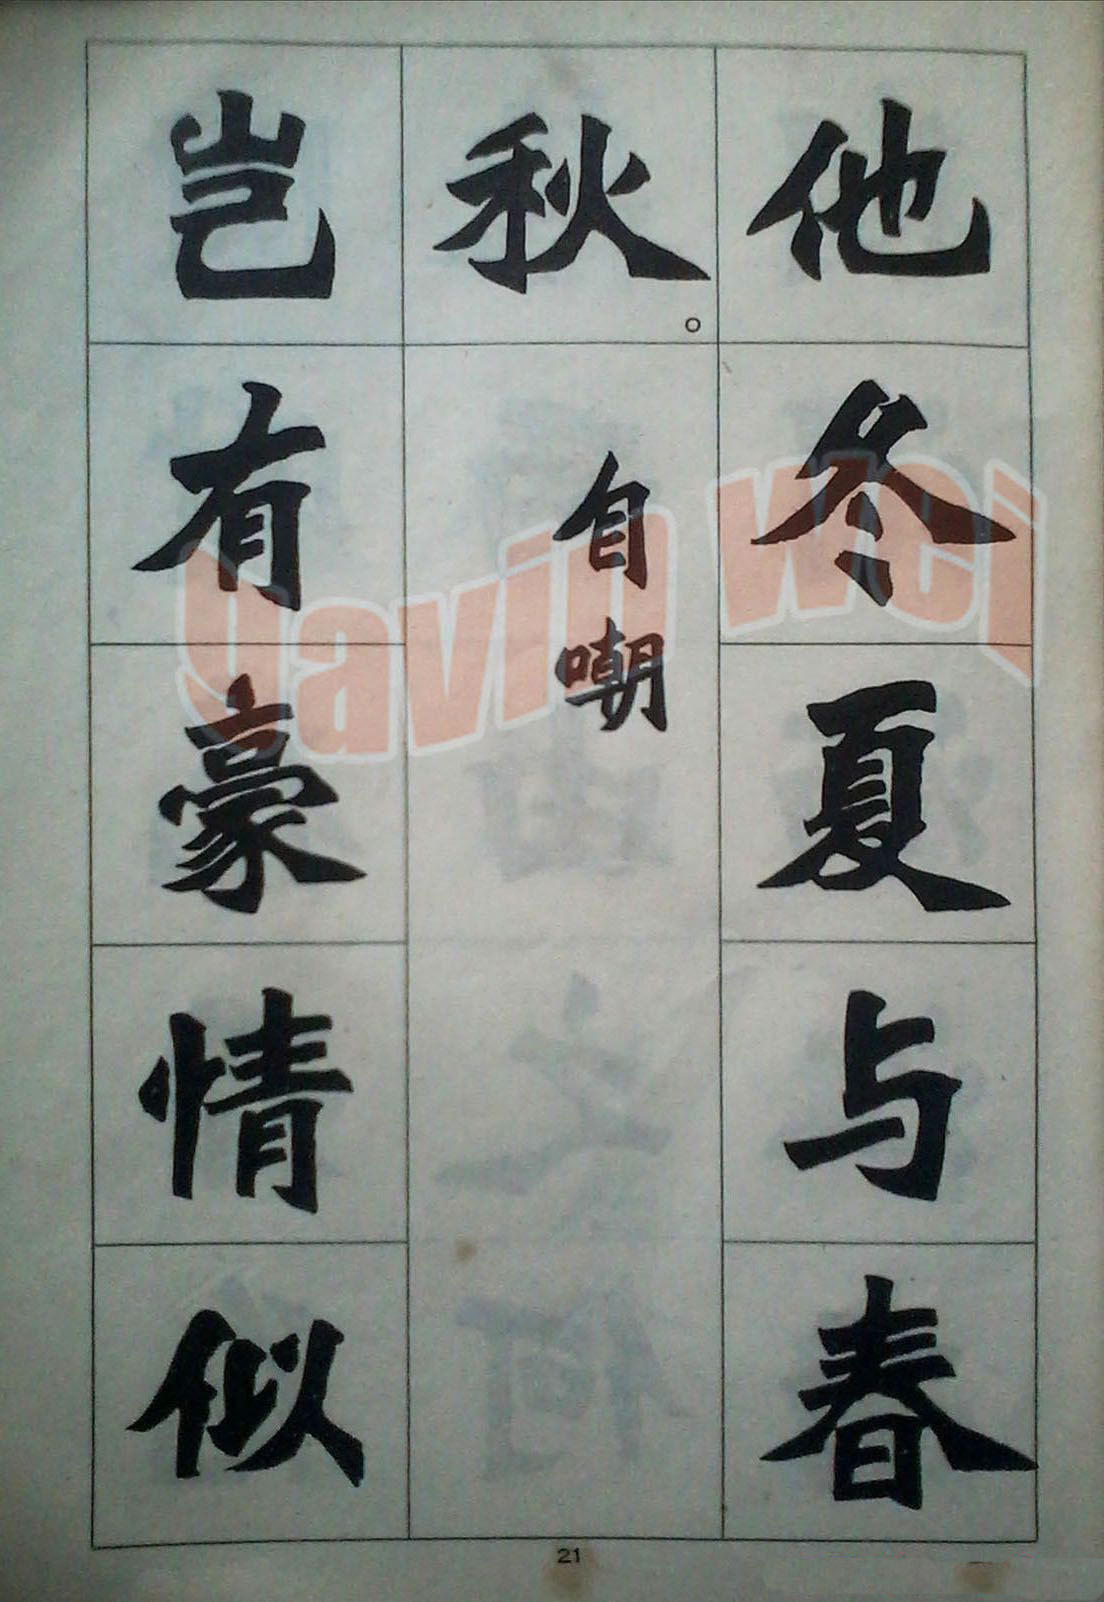 他冬夏与春
秋。
自嘲
岂有豪情似
21
gavin wei